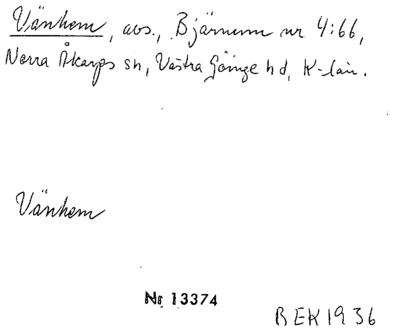 Vänhem, avs., Bjärnum nr 4:66,
Norra Åkarps sn, Västra Göinge hd, K-län.
Vänhem
Nr 13374
BEK 1936